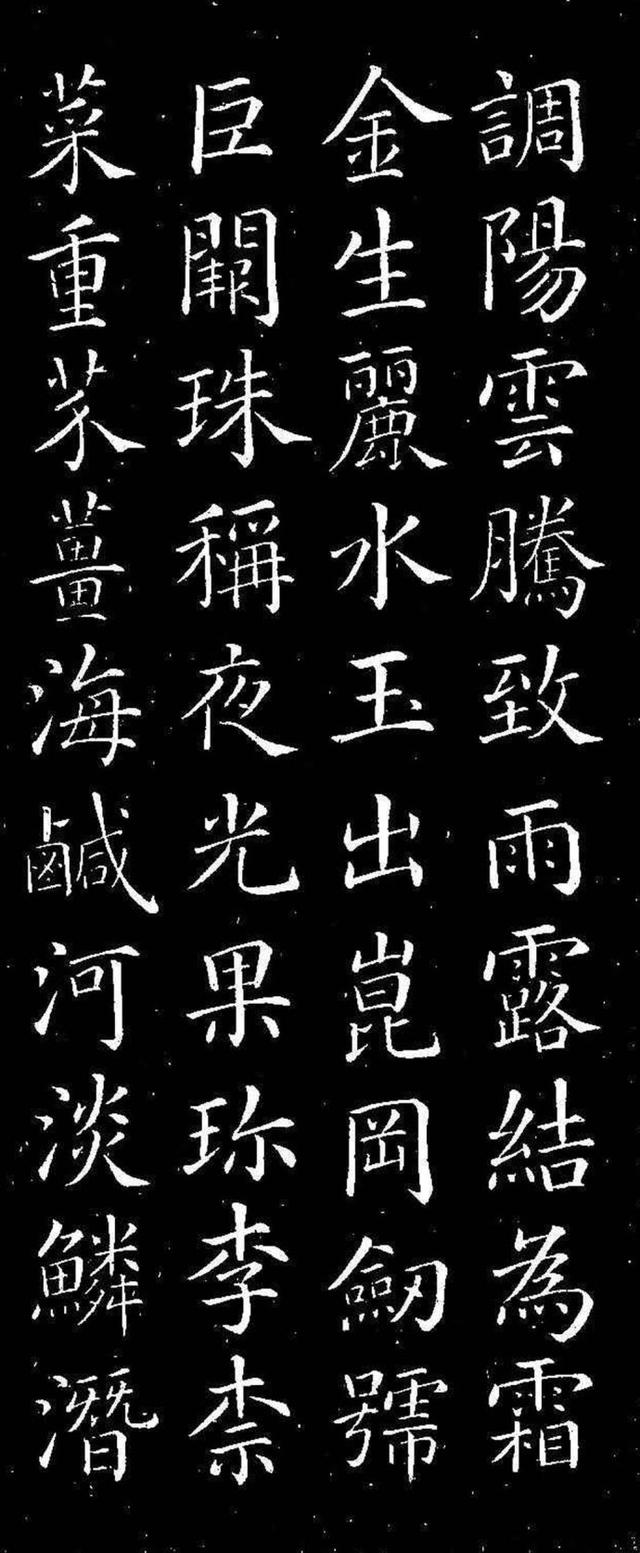 調陽雲騰致雨露結為霜
金生麗水玉出崑岡劒號
巨闕珠稱夜光果珎李柰
菜重芥薑海鹹河淡鱗潛